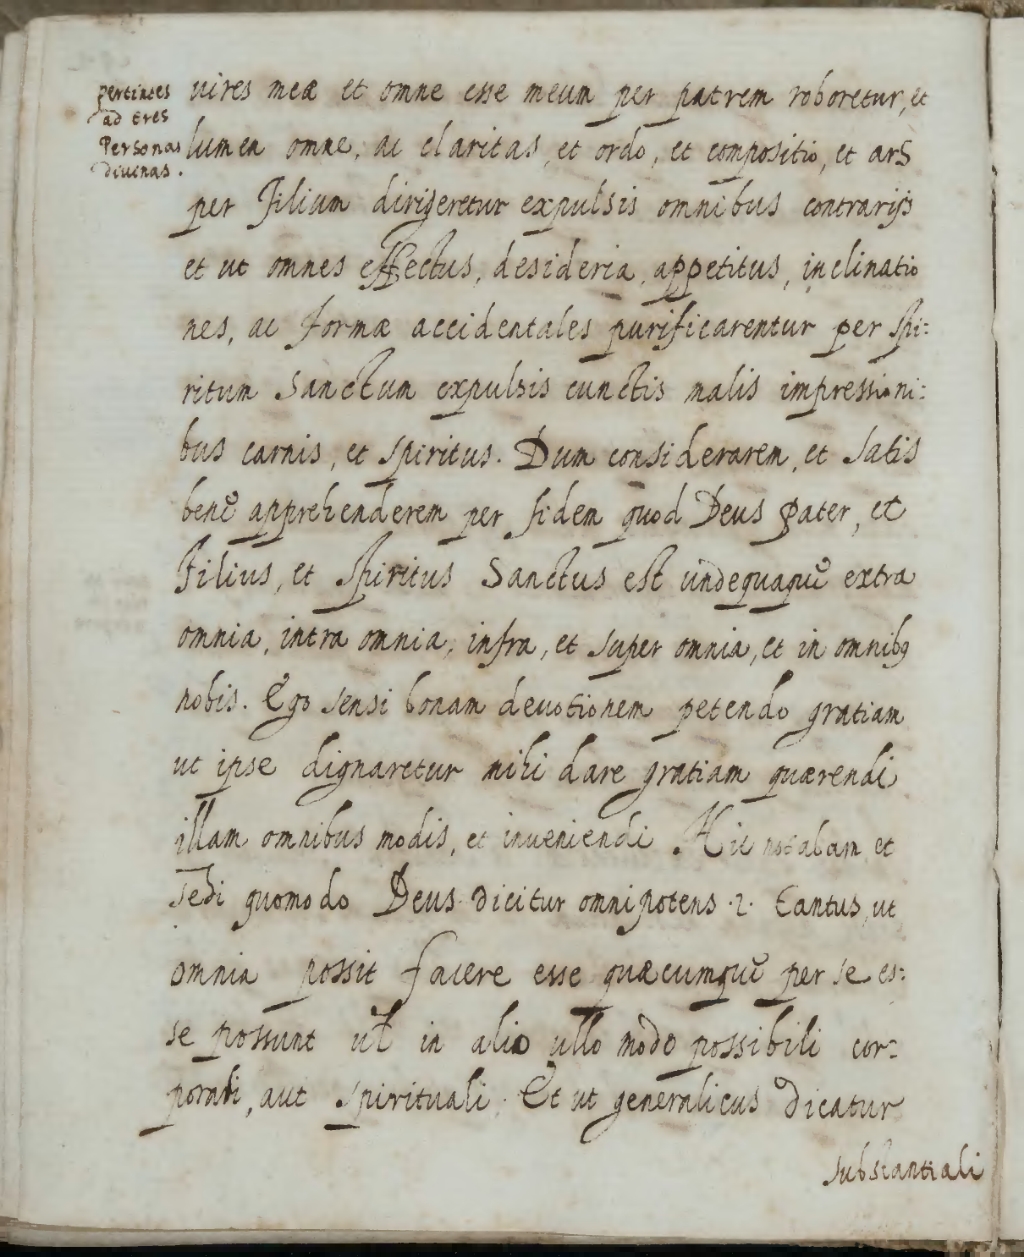 pertinētes
ad tres
Personas
divinas.
vires meæ et omne esse meum per patrem roboretur, et
lumen omne, ac claritas, et ordo, et compositio, et ars
per Filium dirigeretur expulsis omnibus contrarijs
et ut omnes effectus, desideria, appetitus, inclinatio
nes, ac formæ accidentales purificarentur per Spi:
ritum Sanctum expulsis cunctis malis impressioni:
bus carnis, et spiritus. Dum considerarem, et satis
bene apprehenderem per fidem quod Deus Pater, et
Filius, et Spiritus Sanctus est undequaque extra
omnia, intra omnia, infra, et super omnia, et in omnibꝰ
nobis. Ego sensi bonam devotionem petendo gratiam
ut ipse dignaretur mihi dare gratiam quærendi
illam omnibus modis, et inveniendi. Hic notabam et
quomodo Deus dicitur omnipotens .2. tantus, ut
omnia possit facere esse quæcumque per se es:
se possunt in alio ullo modo possibili cor:
porali, aut spirituali. Et ut generalicus dicatur
substantiali